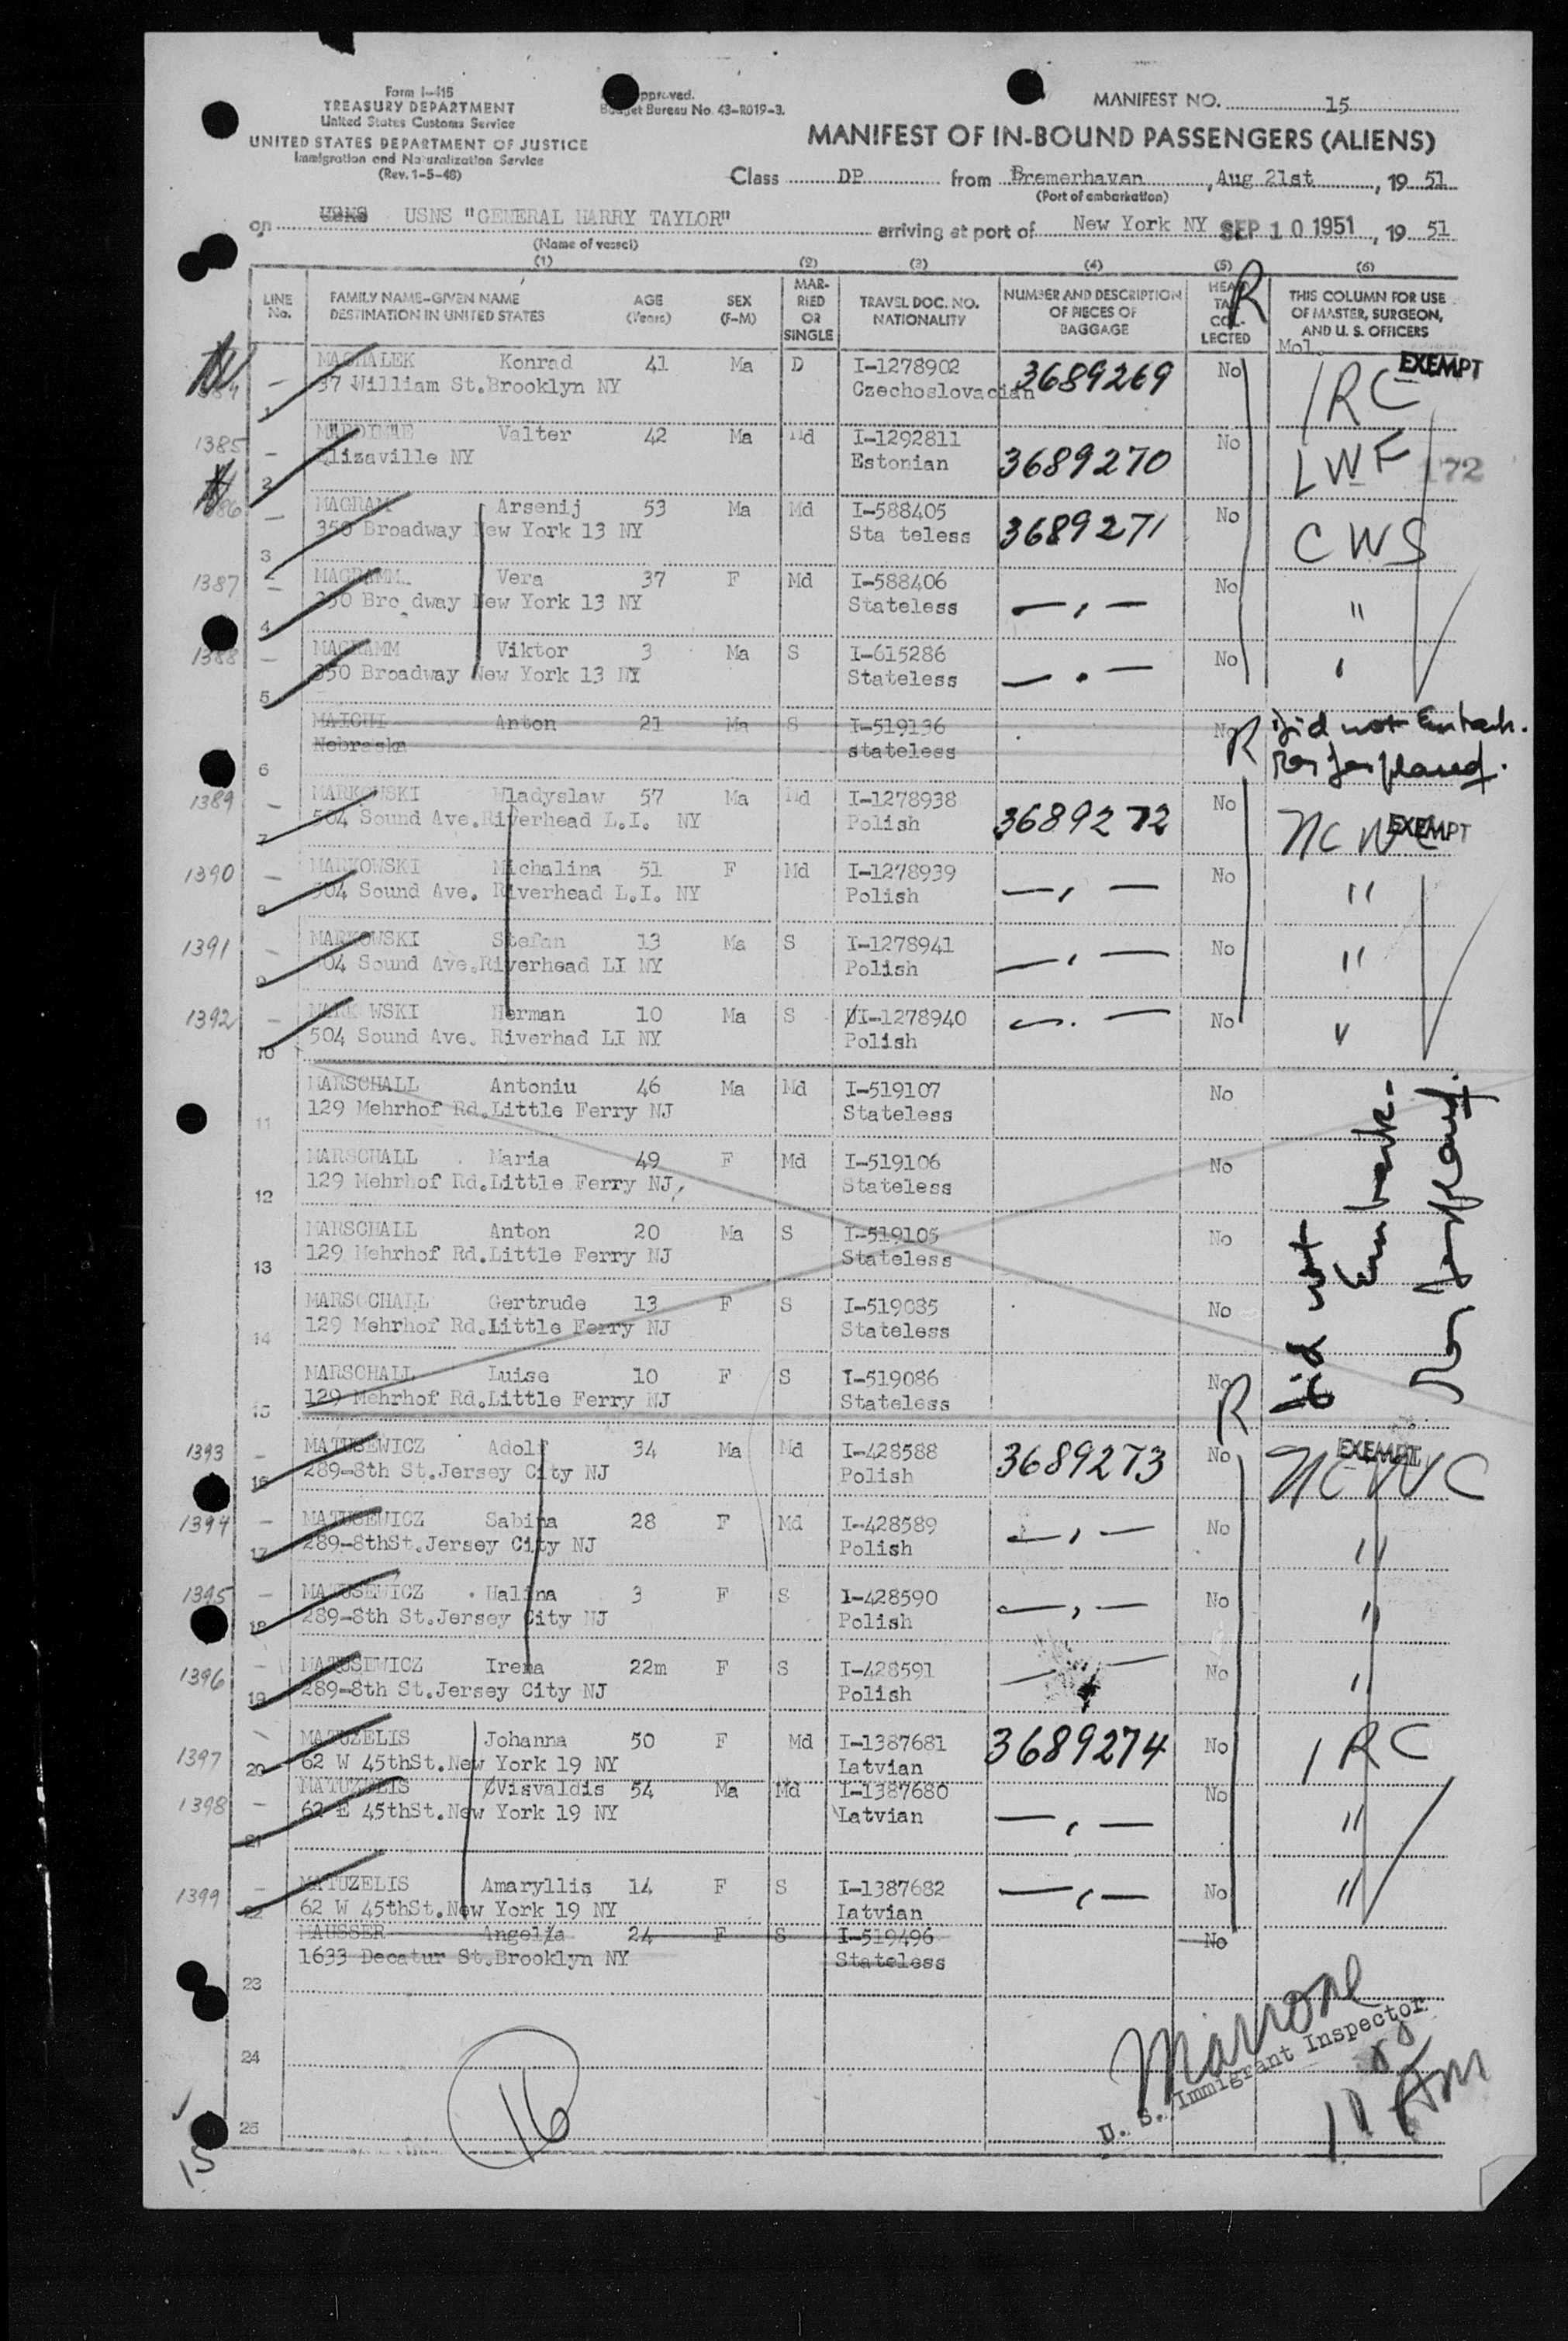 Form I-415
TREASURY DEPARTMENT
United States Customs Service
UNITED STATES DEPARTMENT OF JUSTICE
Immigration and Naturalization Service
(Rev. 1-5-48)
pproved.
Budget Bureau No. 43-R019-3.
MANIFEST NO. 15
MANIFEST OF IN-BOUND PASSENGERS (ALIENS)
Class DP from Bremerhaven, Aug 21st, 19 51
(Port of embarkation)
on USNS USNS "GENERAL HARRY TAYLOR" arriving at port of New York NY SEP 10 1951, 19 51
(Name of vessel)
(1) (2) (3) (4) (5) (6)
LINE No. FAMILY NAME-GIVEN NAME DESTINATION IN UNITED STATES AGE (Years) SEX (F-M) MARRIED OR SINGLE TRAVEL DOC. NO. NATIONALITY NUMBER AND DESCRIPTION OF PIECES OF BAGGAGE HEAD TAX COLLECTED THIS COLUMN FOR USE OF MASTER, SURGEON, AND U. S. OFFICERS
R
Mol.
1 MACHALEK Konrad 41 Ma D I-1278902 3689269 No IRC EXEMPT
37 William St.Brooklyn NY Czechoslovacian
1385 Valter 42 Ma Md I-1292811 No
2 Elizaville NY Estonian 3689270 LWF 172
3 MAGRAM Arsenij 53 Ma Md I-588405 3689271 No CWS
350 Broadway New York 13 NY Sta teless
1387 4 MAGRAMM Vera 37 F Md I-588406 No
350 Bro dway New York 13 NY Stateless — , — "
1388 5 MAGRAMM Viktor 3 Ma S I-615286 No
350 Broadway New York 13 NY Stateless — . — '
6 MAICHI Anton 21 Ma S I-519136 No R Did not Embark.
Nebraska stateless
1389 7 MARKOWSKI Wladyslaw 57 Ma Md I-1278938 3689272 No NCWC EXEMPT
504 Sound Ave.Riverhead L.I. NY Polish
1390 8 MARKOWSKI Michalina 51 F Md I-1278939 — , — No "
504 Sound Ave. Riverhead L.I. NY Polish
1391 9 MARKOWSKI Stefan 13 Ma S I-1278941 — , — No "
504 Sound Ave.Riverhead LI NY Polish
1392 10 MARK WSKI Herman 10 Ma S I-1278940 — . — No "
504 Sound Ave. Riverhad LI NY Polish
11 MARSCHALL Antoniu 46 Ma Md I-519107 No
129 Mehrhof Rd.Little Ferry NJ Stateless
12 MARSCHALL Maria 49 F Md I-519106 No
129 Mehrhof Rd.Little Ferry NJ Stateless
13 MARSCHALL Anton 20 Ma S I-519105 No
129 Mehrhof Rd.Little Ferry NJ Stateless
14 MARSCCHALL Gertrude 13 F S I-519085 No
129 Mehrhof Rd.Little Ferry NJ Stateless
15 MARSCHALL Luise 10 F S I-519086 No
129 Mehrhof Rd.Little Ferry NJ Stateless
Did not Embark.
R
1393 16 MATUSEWICZ Adolf 34 Ma Md I-428588 3689273 No NCWC EXEMPT
289-8th St.Jersey City NJ Polish
1394 17 MATUSEWICZ Sabina 28 F Md I-428589 — , — No "
289-8thSt.Jersey City NJ Polish
1395 18 MATUSEWICZ Halina 3 F S I-428590 — , — No "
289-8th St.Jersey City NJ Polish
1396 19 MATUSEWICZ Irena 22m F S I-428591 No "
289-8th St.Jersey City NJ Polish
1397 20 MATUZELIS Johanna 50 F Md I-1387681 3689274 No IRC
62 W 45thSt.New York 19 NY Latvian
1398 21 MATUZELIS Visvaldis 54 Ma Md I-1387680 No
62 E 45thSt.New York 19 NY Latvian — , — "
1399 22 MATUZELIS Amaryllis 14 F S I-1387682 — , — No "
62 W 45thSt.New York 19 NY Iatvian
MAUSSER Angela 24 F S I-519496 No
1633 Decatur St.Brooklyn NY Stateless
23
24
25
16
Marrone
U. S. Immigrant Inspector
11 AM
15